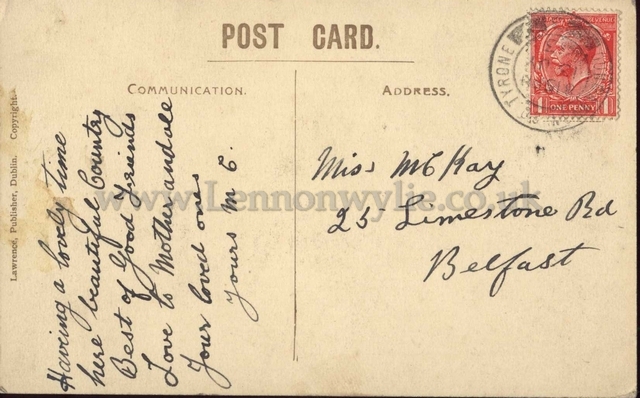 POST CARD.
COMMUNICATION.
ADDRESS.
Lawrence, Publisher, Dublin. Copyright.
Having a lovely time
here beautiful Country
Best of Good Friends
Love to Mother and ole
Your loved ones
Yours M C.
Miss McKay
25 Limestone Rd
Belfast
TYRONE
REVENUE
ONE PENNY
1
www.Lennonwylie.co.uk